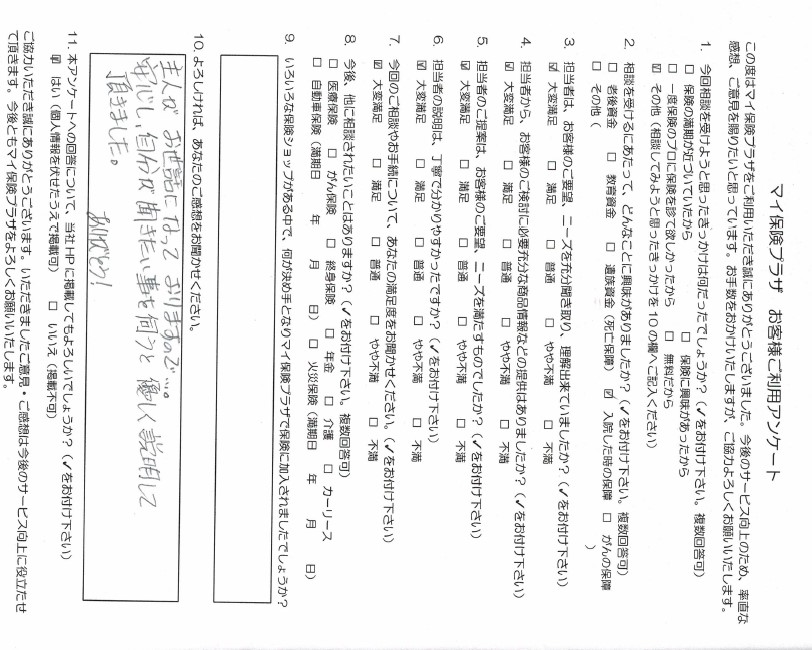 マイ保険プラザ　お客様ご利用アンケート
この度はマイ保険プラザをご利用いただき誠にありがとうございました。今後のサービス向上のため、率直な
感想、ご意見を賜りたいと思っています。お手数をおかけいたしますが、ご協力よろしくお願いいたします。
1. 今回相談を受けようと思ったきっかけは何だったでしょうか？（✓をお付け下さい。複数回答可）
□ 保険の満期が近づいていたから　□ 保険に興味があったから
□ 一度保険のプロに保険を診て欲しかったから　□ 無料だから
☑ その他（相談してみようと思ったきっかけを10の欄へご記入ください）
2. 相談を受けるにあたって、どんなことに興味がありましたか？（✓をお付け下さい。複数回答可）
□ 老後資金　□ 教育資金　□ 遺族資金（死亡保障）　☑ 入院した時の保障　□ がんの保障
□ その他（　　　）
3. 担当者は、お客様のご要望、ニーズを充分聞き取り、理解出来ていましたか？（✓をお付け下さい）
☑ 大変満足　□ 満足　□ 普通　□ やや不満　□ 不満
4. 担当者から、お客様のご検討に必要充分な商品情報などの提供はありましたか？（✓をお付け下さい）
☑ 大変満足　□ 満足　□ 普通　□ やや不満　□ 不満
5. 担当者のご提案は、お客様のご要望、ニーズを満たすものでしたか？（✓をお付け下さい）
☑ 大変満足　□ 満足　□ 普通　□ やや不満　□ 不満
6. 担当者の説明は、丁寧で分かりやすかったですか？（✓をお付け下さい）
☑ 大変満足　□ 満足　□ 普通　□ やや不満　□ 不満
7. 今回のご相談やお手続について、あなたの満足度をお聞かせください。（✓をお付け下さい）
☑ 大変満足　□ 満足　□ 普通　□ やや不満　□ 不満
8. 今後、他に相談されたいことはありますか？（✓をお付け下さい。複数回答可）
□ 医療保険　□ がん保険　□ 終身保険　□ 年金　□ 介護　□ カーリース
□ 自動車保険（満期日　年　月　日）　□ 火災保険（満期日　年　月　日）
9. いろいろな保険ショップがある中で、何が決め手となりマイ保険プラザで保険に加入されましたでしょうか？
10. よろしければ、あなたのご感想をお聞かせください。
主人が お世話になって おりますので…。
安心し、自分が聞きたい事を伺うと 優しく説明して
頂きました。
ありがとう！
11. 本アンケートへの回答について、当社HPに掲載してもよろしいでしょうか？（✓をお付け下さい）
☑ はい（個人情報を伏せたうえで掲載可）　□ いいえ（掲載不可）
ご協力いただき誠にありがとうございます。いただきましたご意見・ご感想は今後のサービス向上に役立たせ
て頂きます。今後ともマイ保険プラザをよろしくお願いいたします。